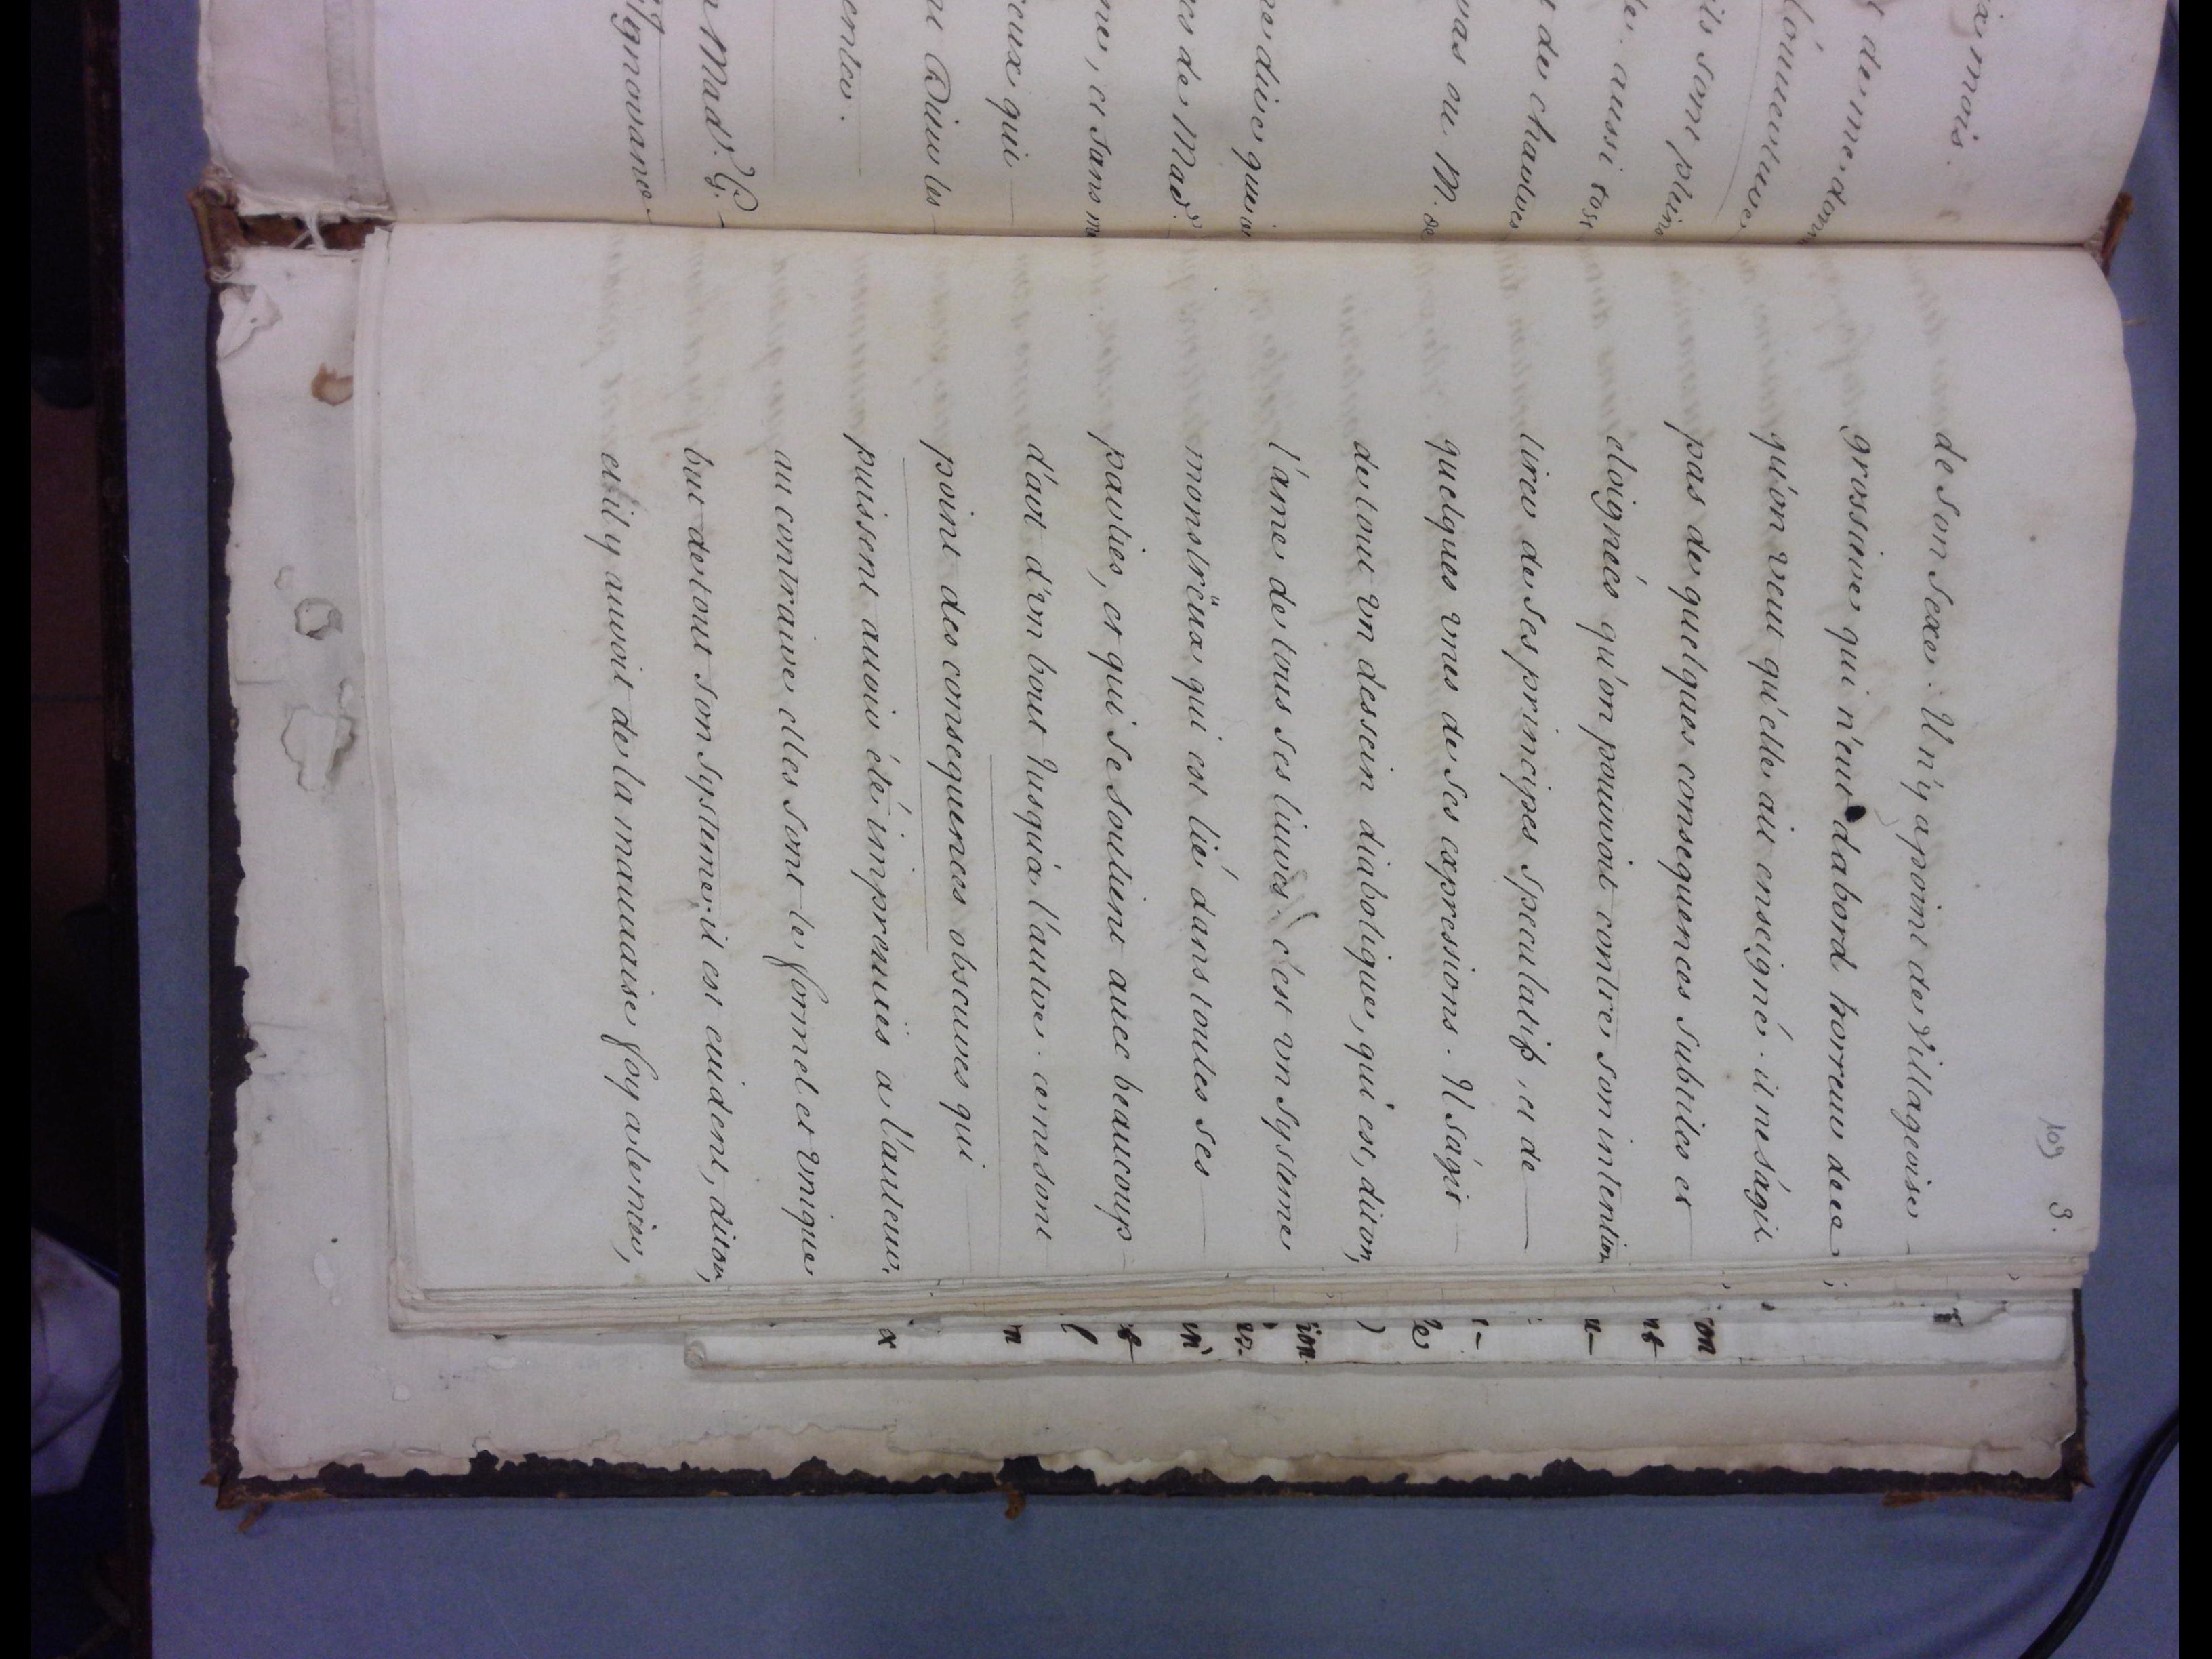 109 3.
de son sexe. Il n'y a point de Villageoise
grossiere qui n'eut dabord horreur de ce
qu'on veut qu'elle ait enseigné. il ne ságit
pas de quelques consequences subtiles et
eloignées qu'on pouvoit contre son intention
tirer de ses principes speculatifs, et de
quelques unes de ses expressions. Il ságit
de tout un dessein diabolique, qui est, diton,
l'ame de tous ses liures. c'est un systeme
monstrëux qui est lié dans toutes ses
parties, et qui se soutient auec beaucoup
d'art d'un bout jusqu'a l'autre. ce ne sont
point des consequences obscures qui
puissent auoir été imprevües a l'auteur.
au contraire elles sont le formel et unique
but de tout son systeme. il est euident, diton,
et il y auroit de la mauuaise foy a le nier,
ix mois.
t de me donn
lóuuerture
ils sont pleins
le. aussi toss
t de chaudes
pas ou M. de
ne dire que ie
es de Mad.
ne, et sans m
ceux qui
ne Dieu les
entes.
Mad. G.
Ignorance